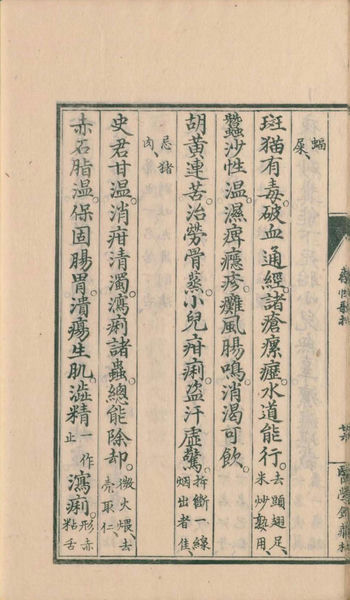 蝠
屎
斑猫有毒。破血通經。諸瘡瘰癧。水道能行。去頭翅足、
米炒熟用、
蠶沙性温。濕痺癮疹。癱風腸鳴。消渴可飲。
胡黄連苦。治勞骨蒸。小兒疳痢。盜汗虛驚。折斷一線
烟出者佳、
忌猪
肉、
史君甘温。消疳清濁。瀉痢諸蟲。總能除却。微火煨、去
壳取仁、
赤石脂温。保固腸胃。潰瘍生肌。澁精一作
止
瀉痢。形赤
粘舌